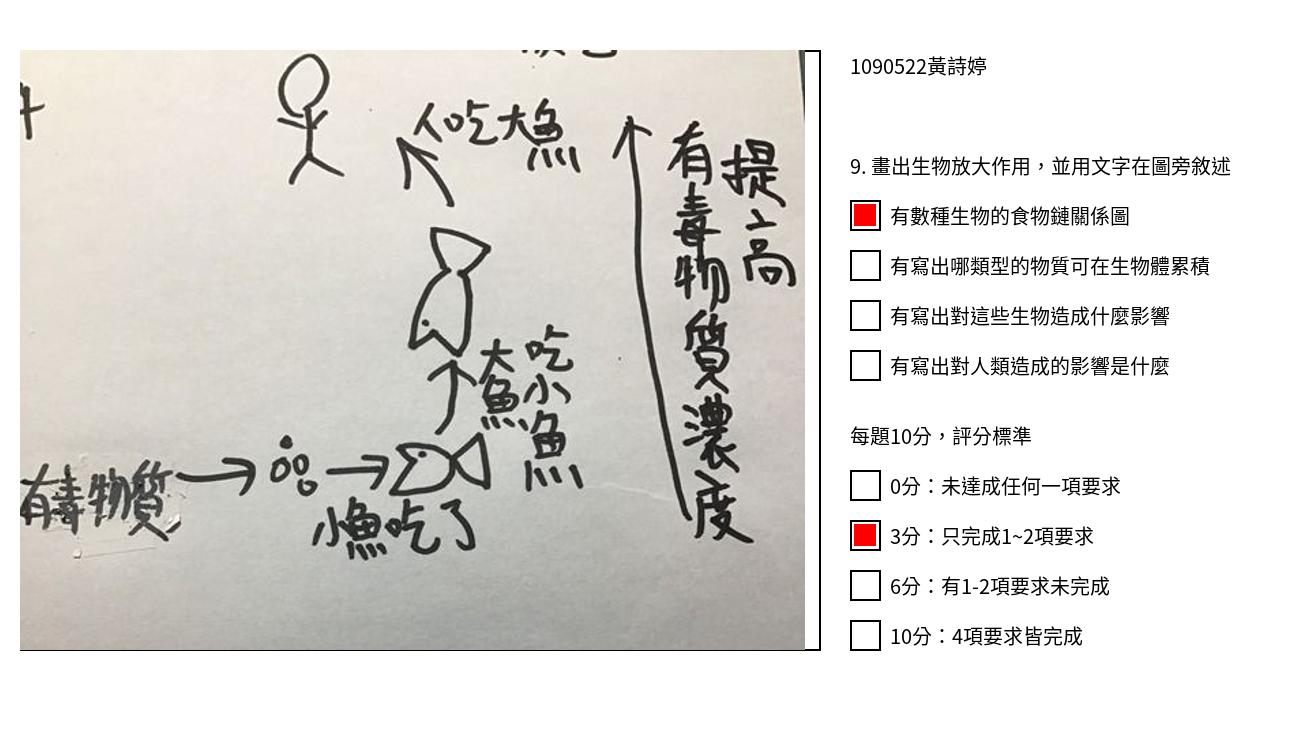 人吃大魚
提高
有毒物質濃度
吃小魚
大魚
有毒物質
小魚吃了
1090522黃詩婷
9. 畫出生物放大作用，並用文字在圖旁敘述
有數種生物的食物鏈關係圖
有寫出哪類型的物質可在生物體累積
有寫出對這些生物造成什麼影響
有寫出對人類造成的影響是什麼
每題10分，評分標準
0分：未達成任何一項要求
3分：只完成1~2項要求
6分：有1-2項要求未完成
10分：4項要求皆完成